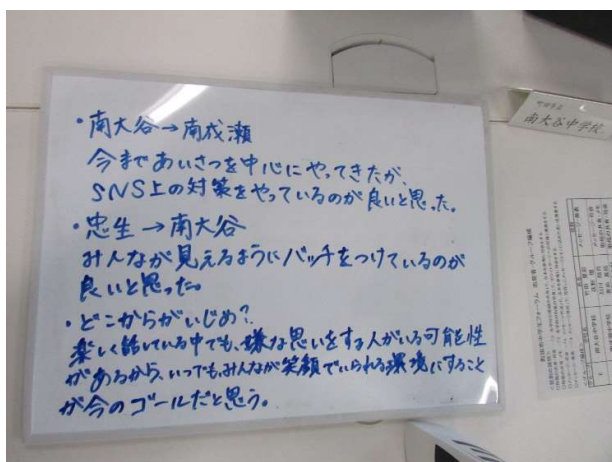 ・南大谷→南成瀬
今まであいさつを中心にやってきたが、
SNS上の対策をやっているのが良いと思った。
・忠生→南大谷
みんなが見えるようにバッチをつけているのが
良いと思った。
・どこからがいじめ?
楽しく話している中でも、嫌な思いをする人がいる可能性
があるから、いつでも、みんなが笑顔でいられる環境にすること
が今のゴールだと思う。
町田市立
南大谷中学校